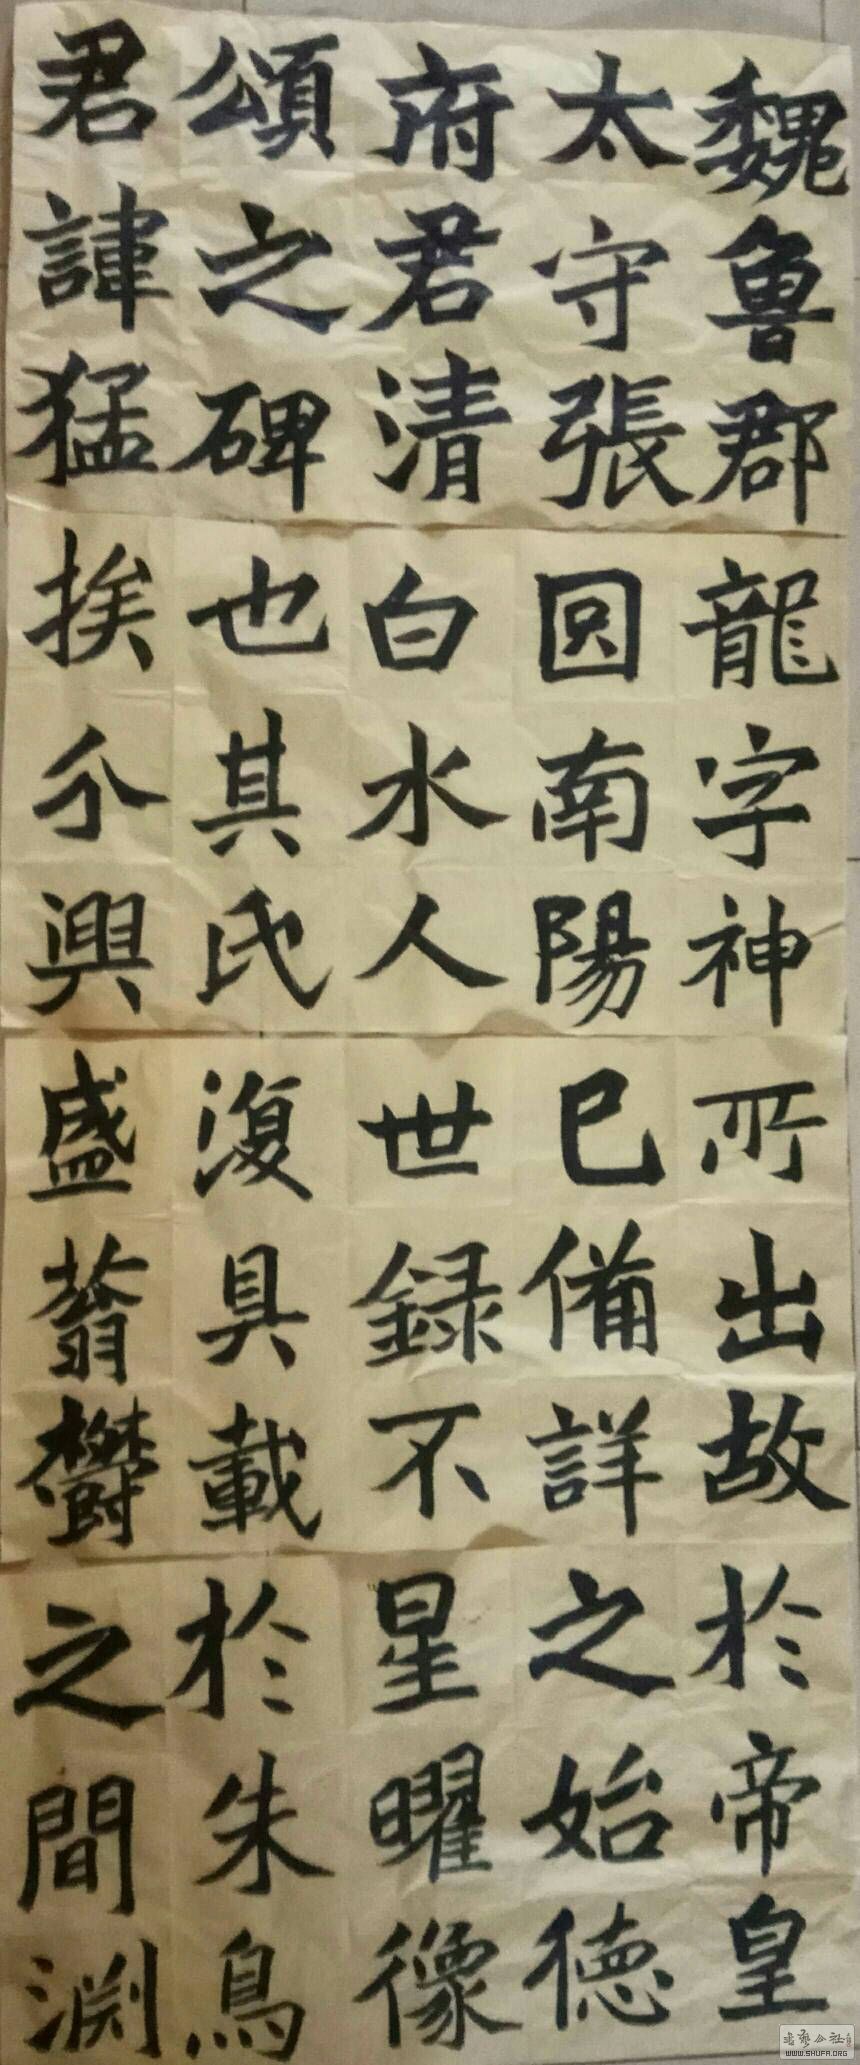 魏魯郡
太守張
府君清
頌之碑
君諱猛
龍字神
冏南陽
白水人
也其氏
族分興
所出故
已備詳
世録不
復具載
盛蓊鬱
於帝皇
之始德
星曜像
於朱鳥
之間淵
书艺公社
WWW.SHUFA.ORG